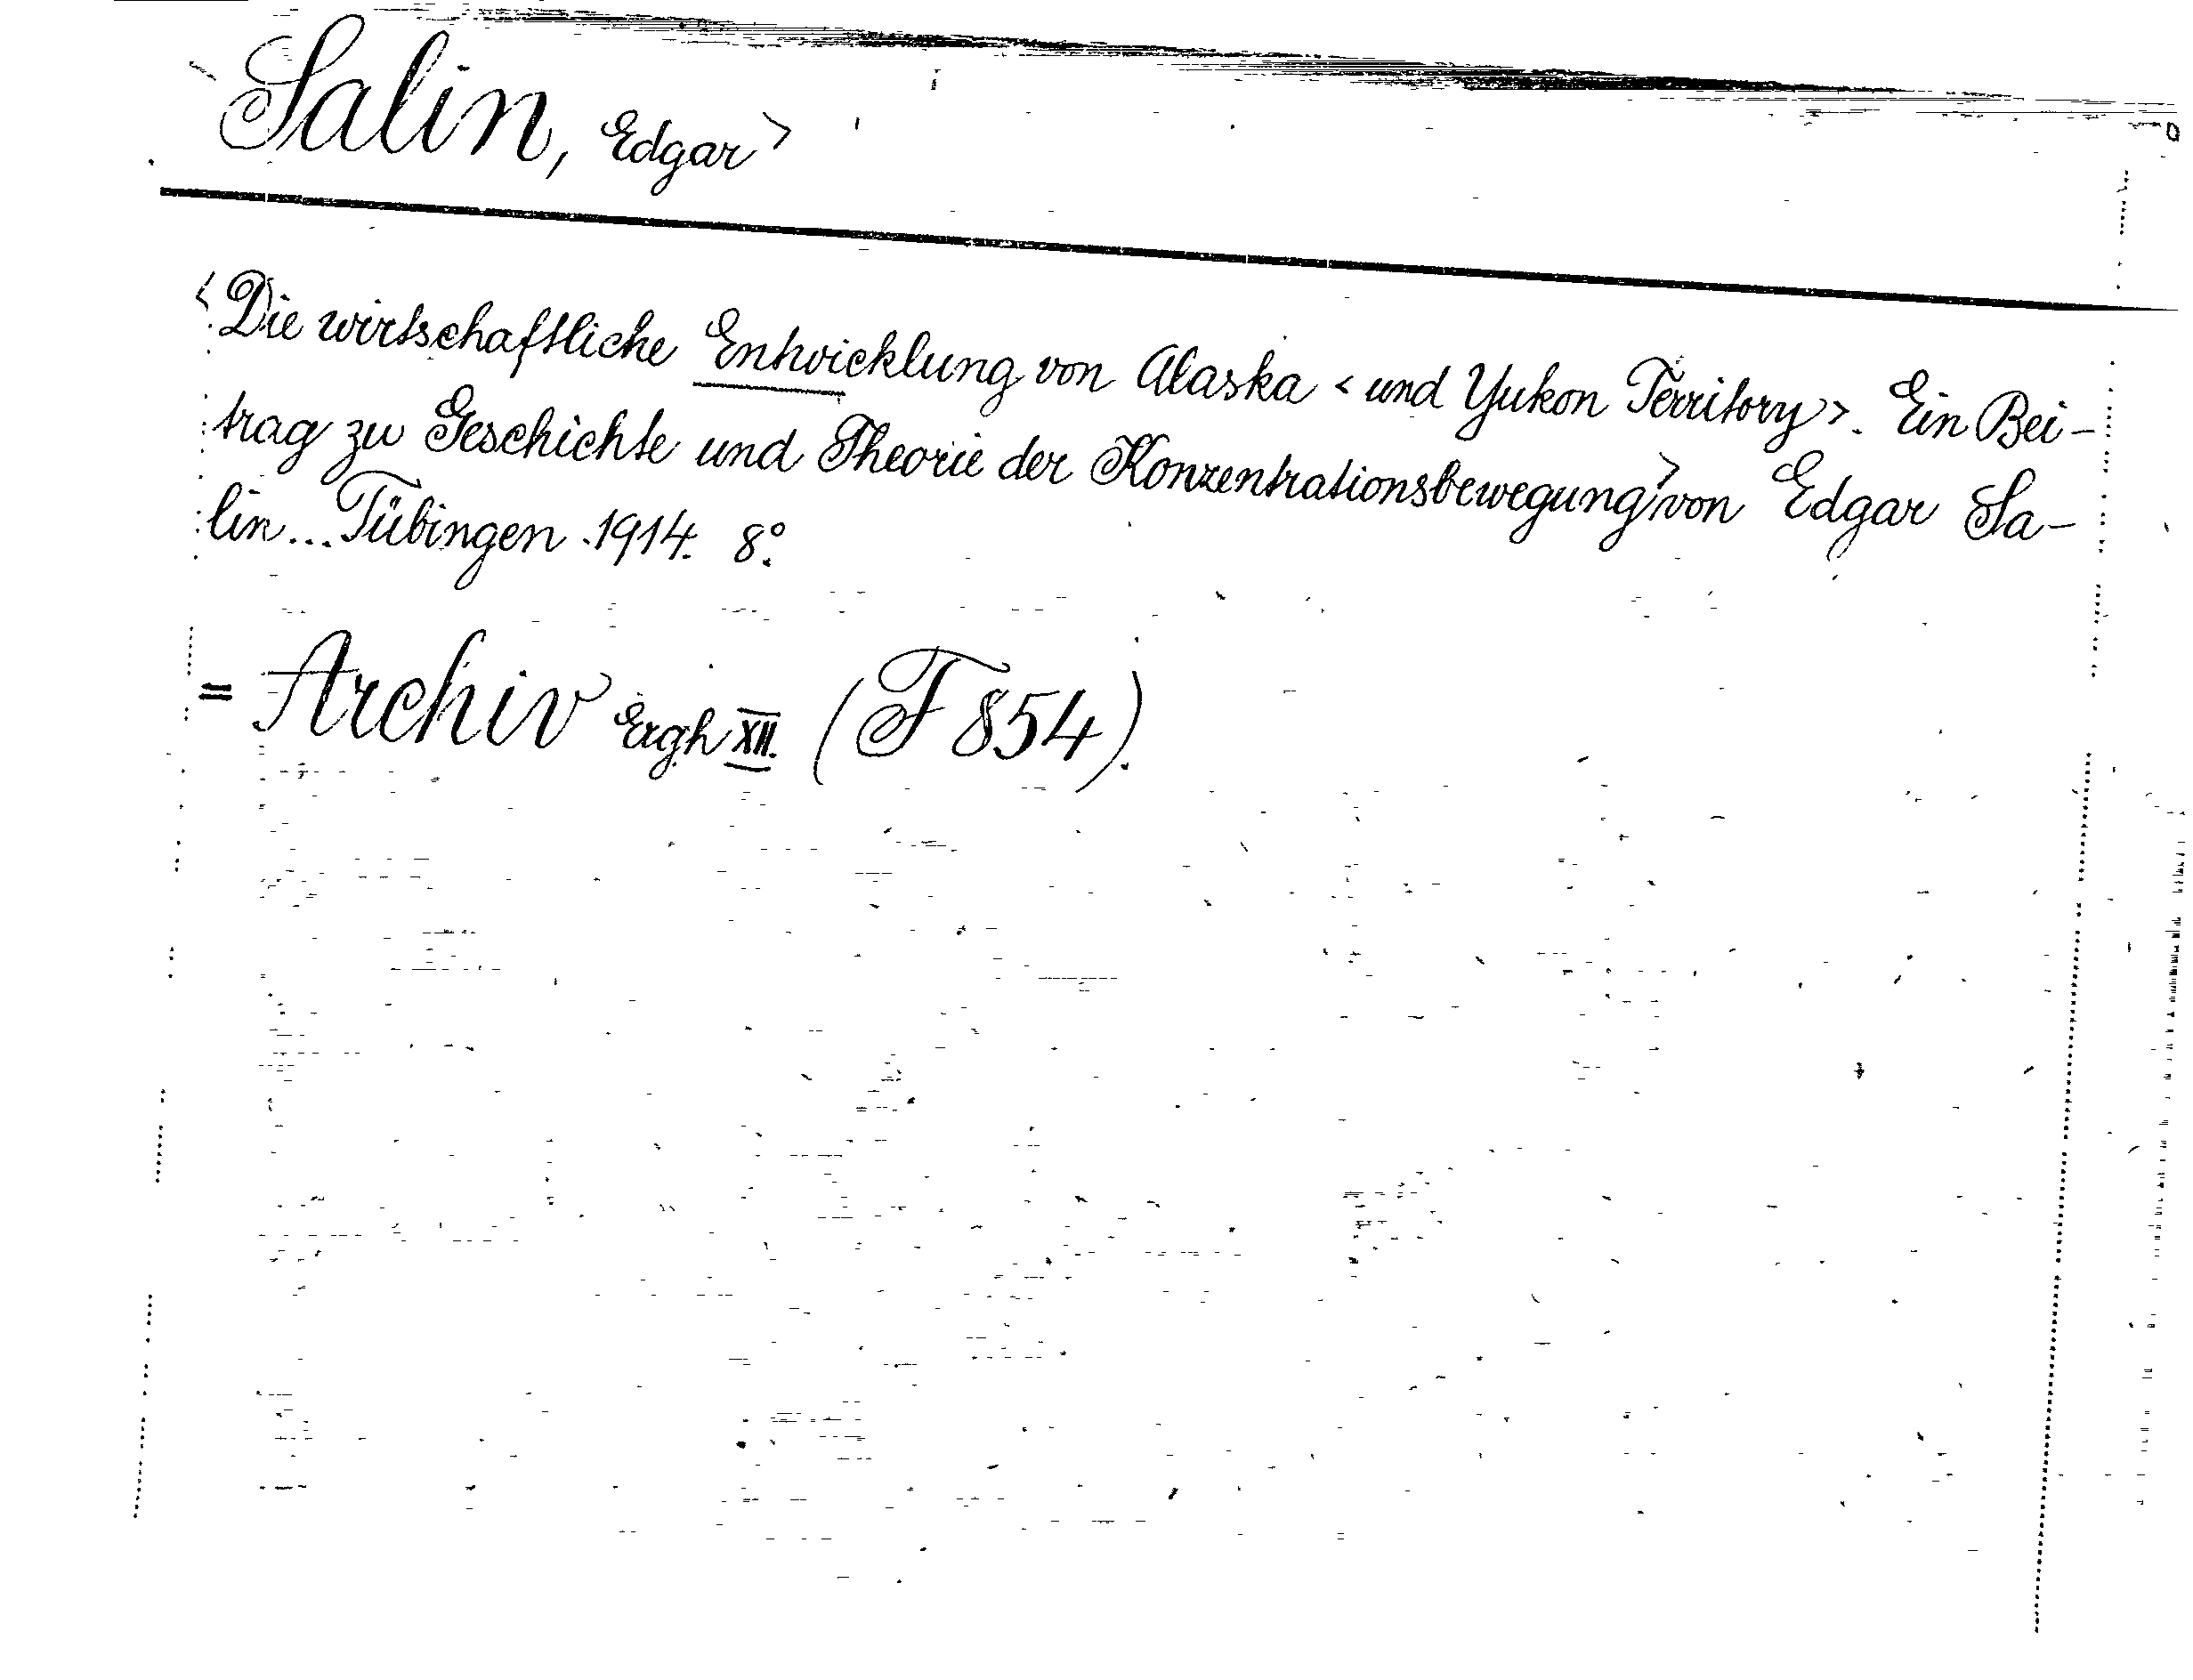 Salin, Edgar>
<Die wirtschaftliche Entwicklung von Alaska <und Yukon Territory>. Ein Bei-
trag zu Geschichte und Theorie der Konzentrationsbewegung> von Edgar Sa-
lin... Tübingen 1914. 8°.
= Archiv Ergh XII. (F 854).